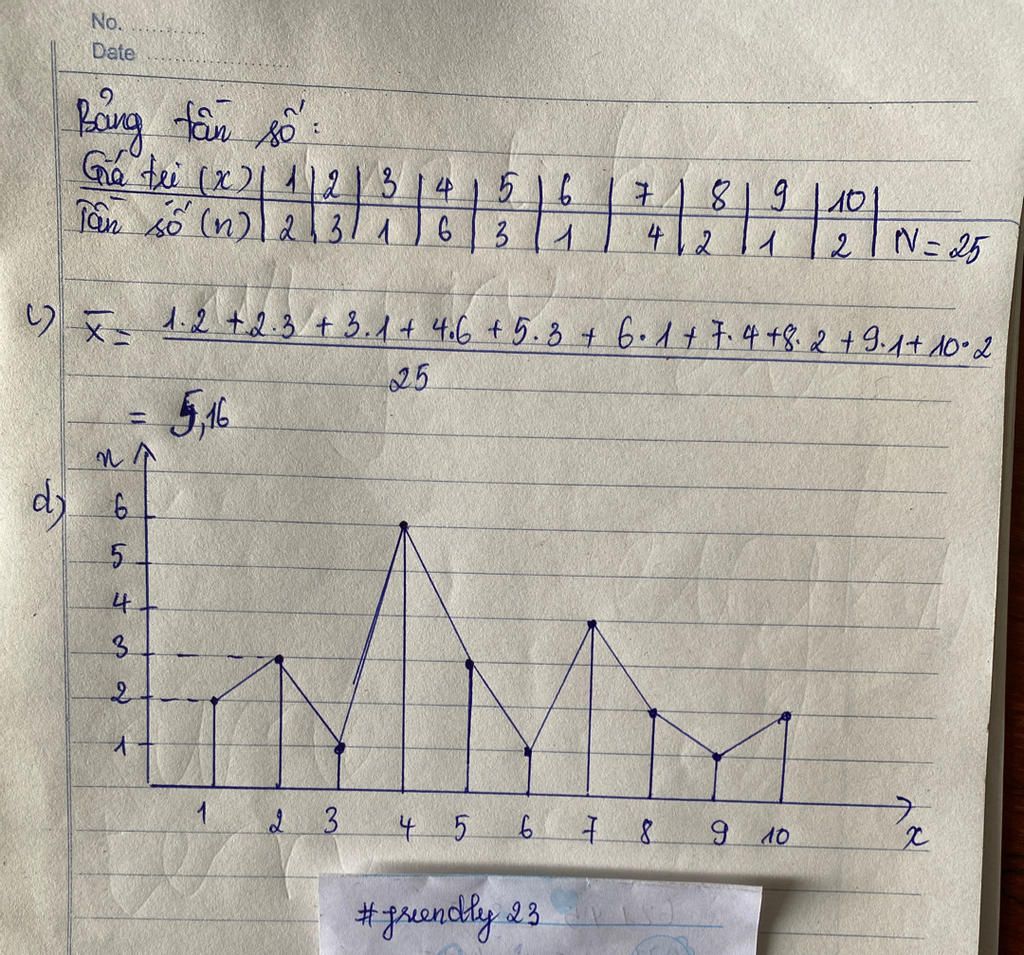 No. ............
Date ........................
Bảng tần số:
Giá trị (x) | 1 | 2 | 3 | 4 | 5 | 6 | 7 | 8 | 9 | 10 |
Tần số (n) | 2 | 3 | 1 | 6 | 3 | 1 | 4 | 2 | 1 | 2 | N = 25
c) x̅ = 1.2 + 2.3 + 3.1 + 4.6 + 5.3 + 6.1 + 7.4 + 8.2 + 9.1 + 10.2
25
= 5,16
d)
n
6
5
4
3
2
1
1 2 3 4 5 6 7 8 9 10 x
#friendly 23